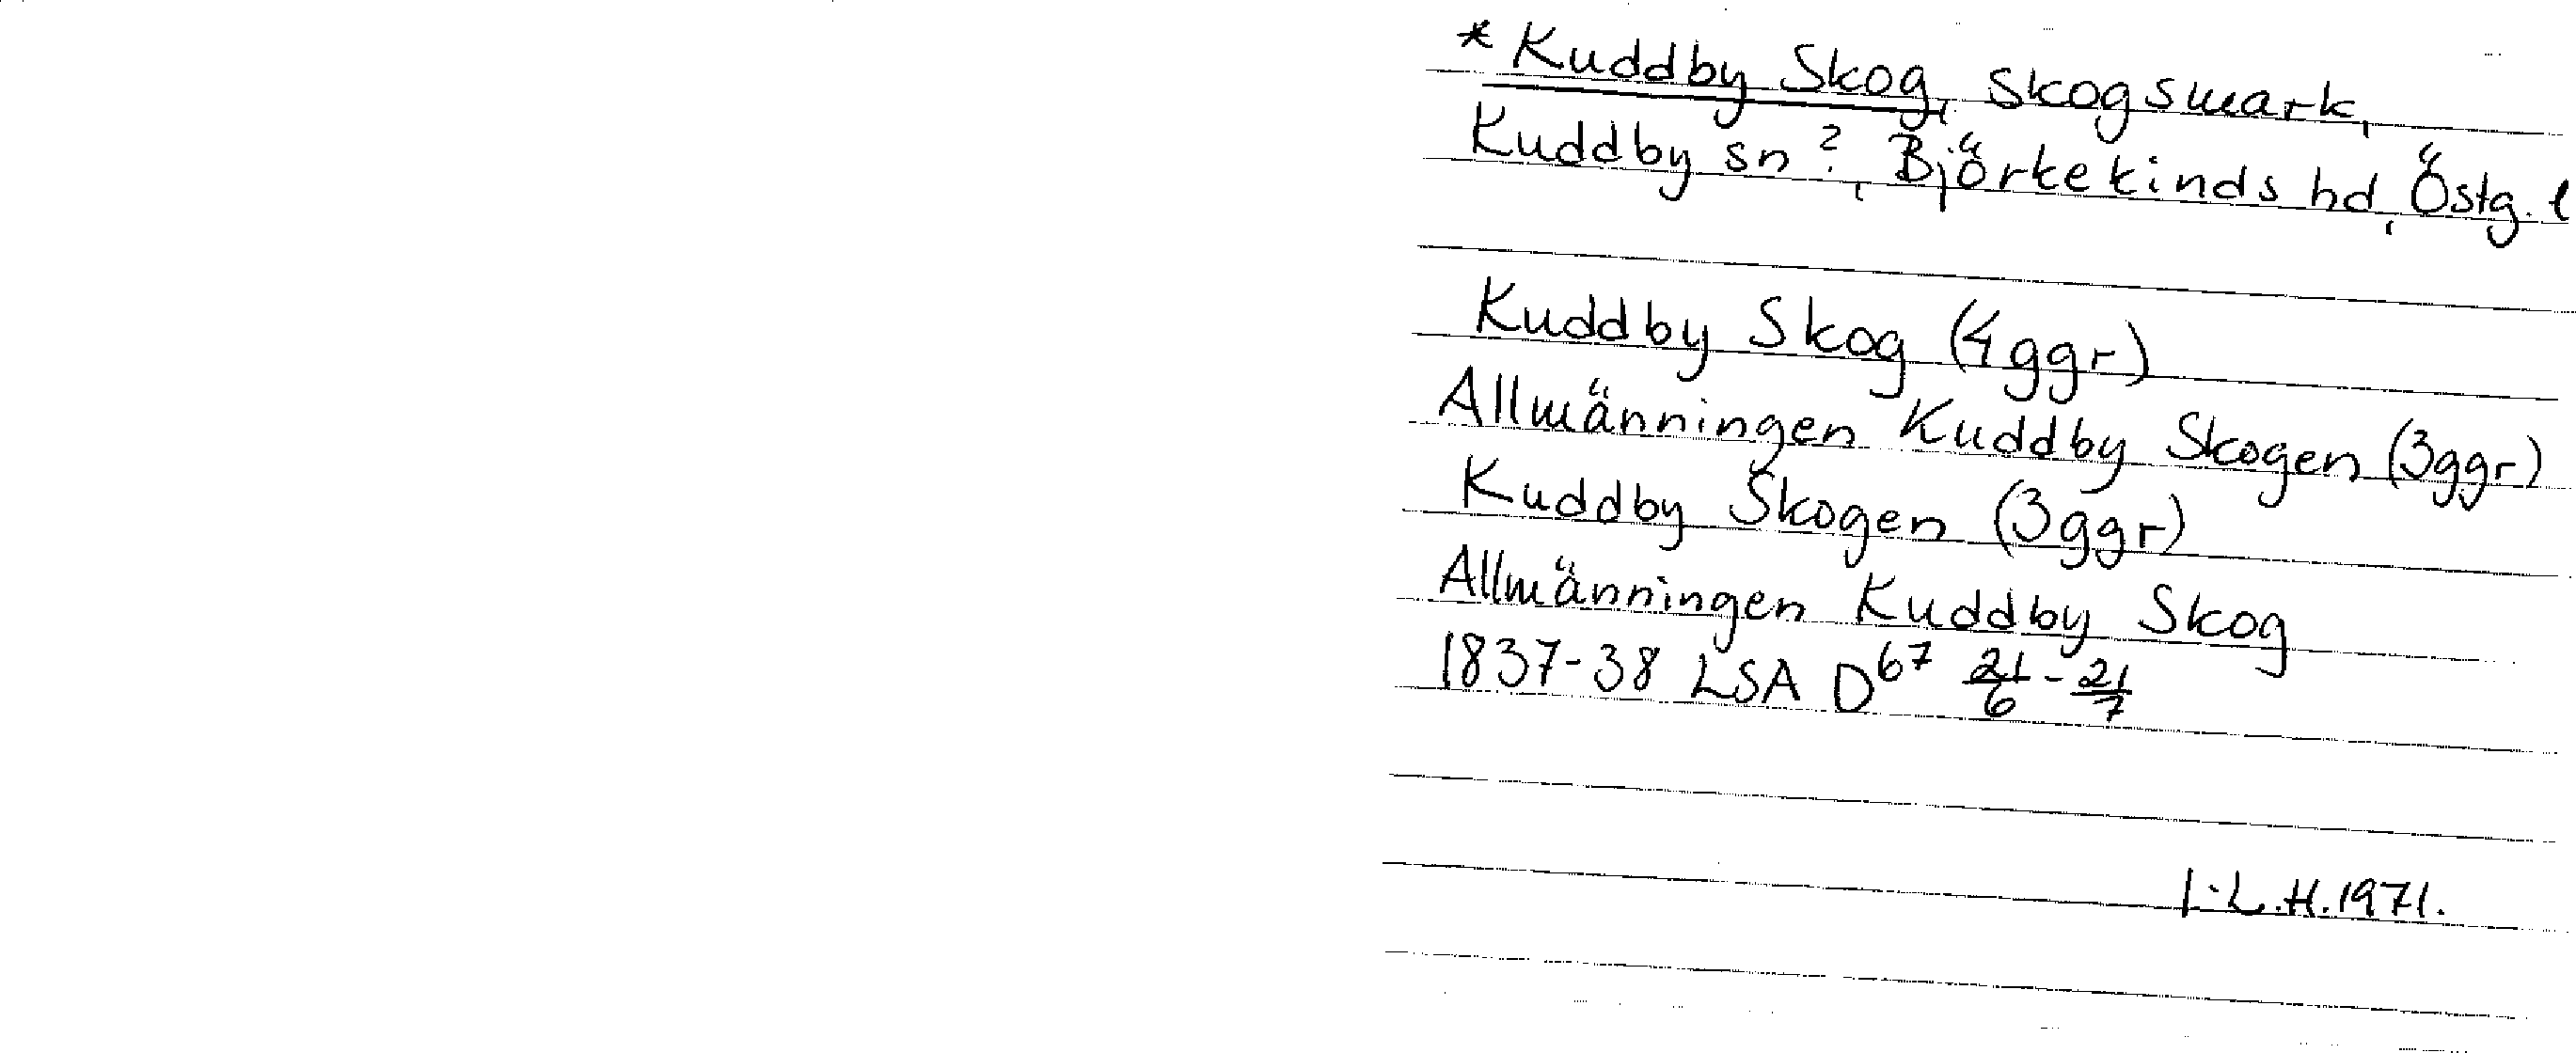 * Kuddby Skog, skogsmark,
Kuddby sn?, Björkekinds hd, Östg. l
Kuddby Skog (4ggr)
Allmänningen Kuddby Skogen (3ggr)
Kuddby Skogen (3ggr)
Allmänningen Kuddby Skog
1837-38 LSA D67 21/6 - 21/7
I.L.H. 1971.